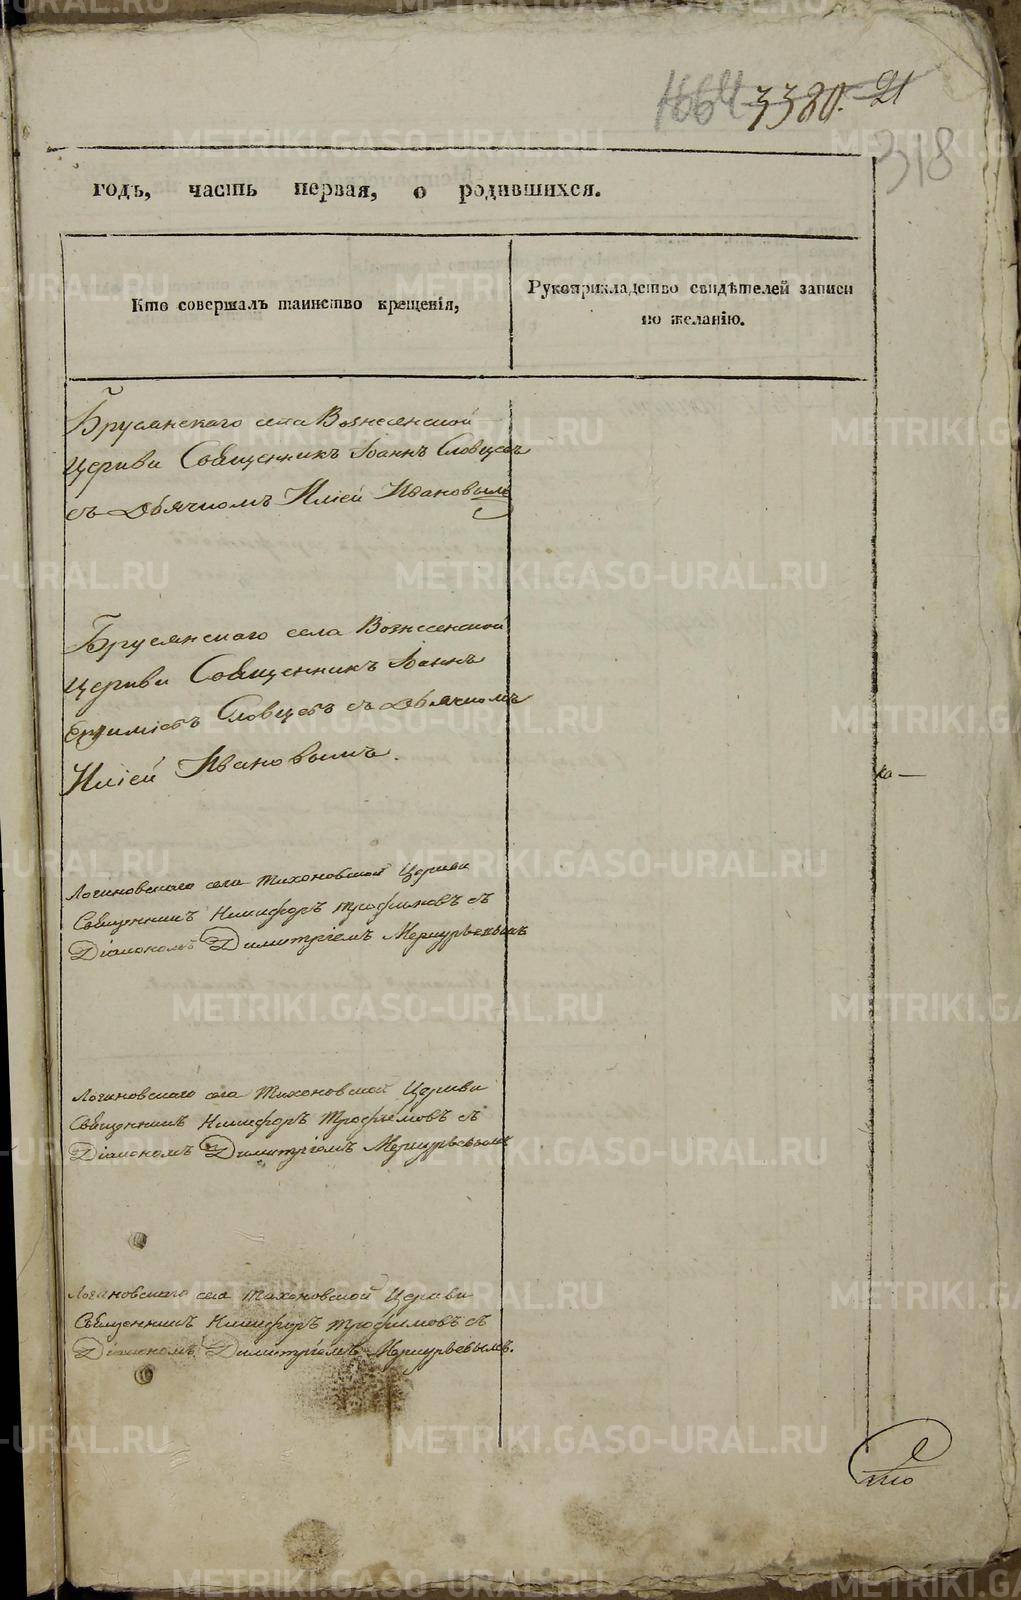 3380. 21
318
годъ, часть первая, о родившихся.
Кто совершалъ таинство крещенія,
Рукоприкладство свидѣтелей записи
по желанію.
Брусянскаго села Вознесенской
Церкви Священникъ Іоаннъ Словцевъ
съ Дьячкомъ Иліей Ивановымъ
Брусянскаго села Вознесенской
Церкви Священникъ Іоаннъ
Словцевъ съ Дьячкомъ
Иліей Ивановымъ.
Логиновскаго села Тихоновской Церкви
Священникъ Никифоръ Трофимовъ съ
Діакономъ Димитріемъ Меркурьевымъ
Логиновскаго села Тихоновской Церкви
Священникъ Никифоръ Трофимовъ съ
Діакономъ Димитріемъ Меркурьевымъ
Логиновскаго села Тихоновской Церкви
Священникъ Никифоръ Трофимовъ съ
Діакономъ Димитріемъ Меркурьевымъ.
METRIKI.GASO-URAL.RU